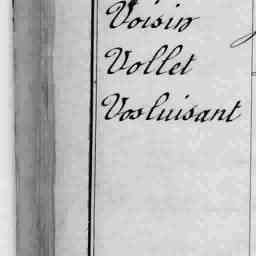 Voisin
Vollet
Vosluisant